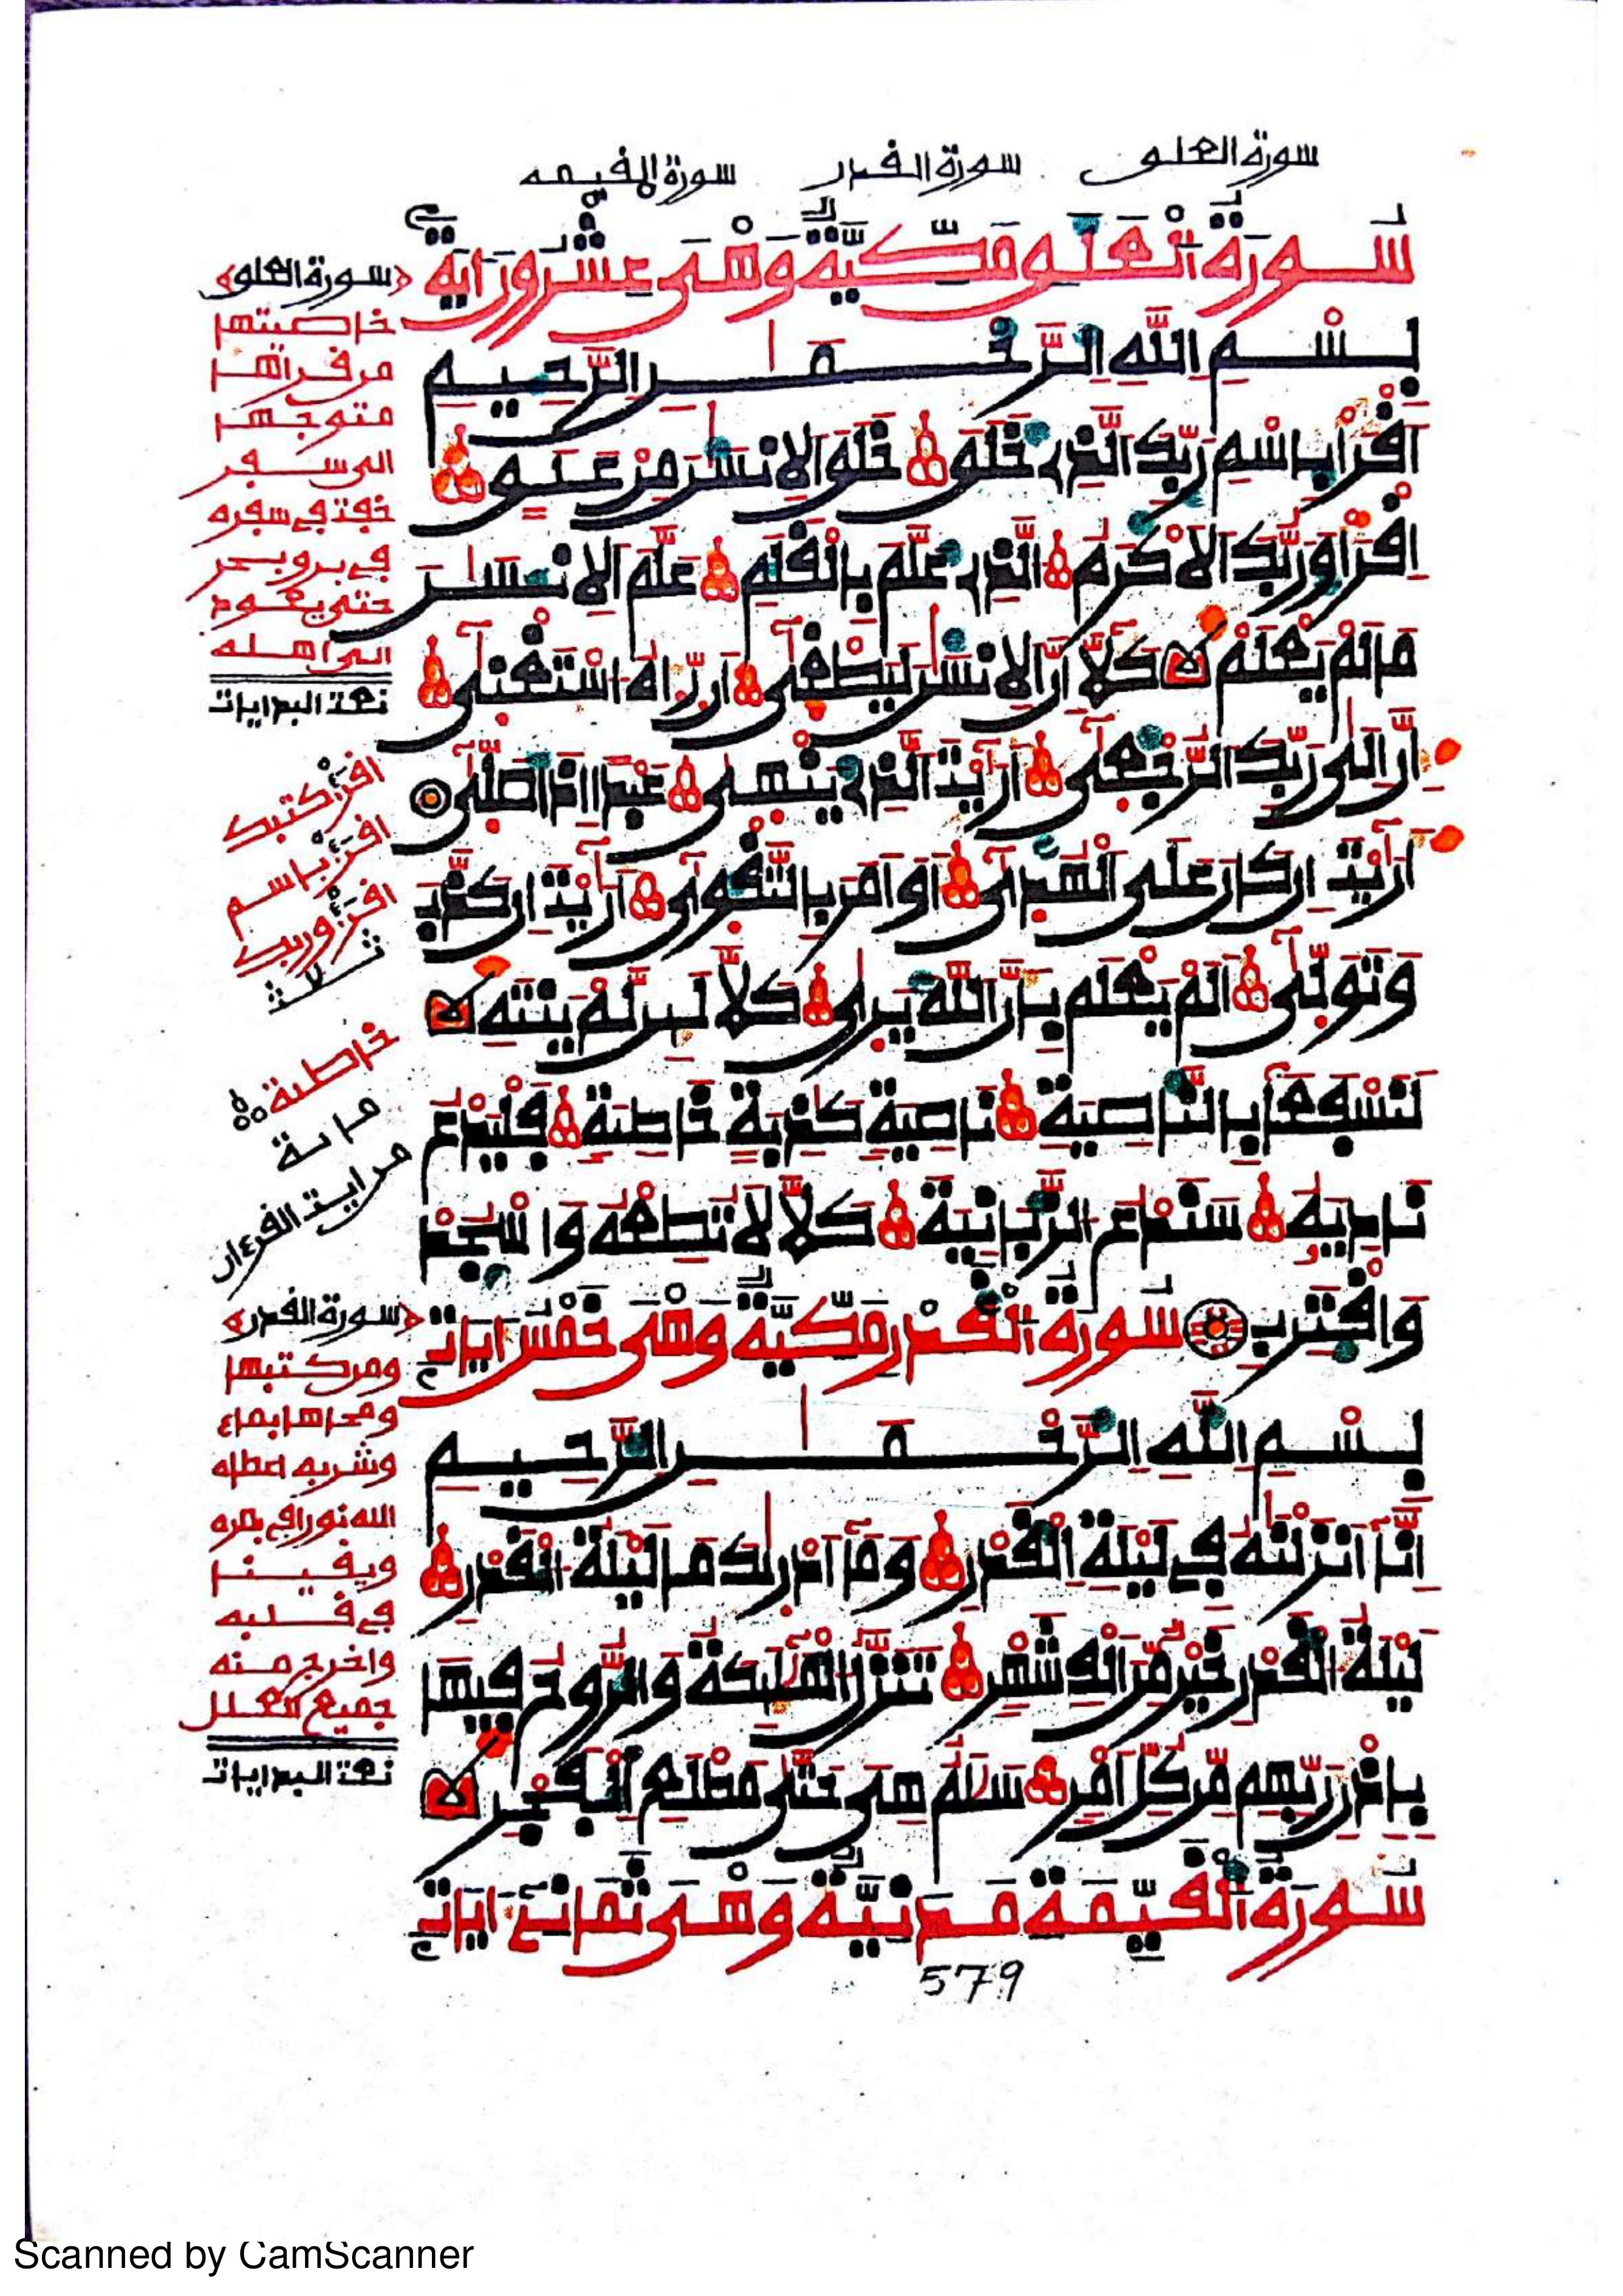 سورة العلق سورة القدر سورة القيمه
سُورَةُ الْعَلَقِ مَكِّيَّةٌ وَهْيَ عِشْرُونَ ءَايَةً
بِسْمِ اللَّهِ الرَّحْمَٰنِ الرَّحِيمِ
اَقْرَأْ بِاسْمِ رَبِّكَ الَّذِي خَلَقَ خَلَقَ الِانسَٰنَ مِنْ عَلَقٍ
اِقْرَأْ وَرَبُّكَ الَاكْرَمُ الَّذِي عَلَّمَ بِالْقَلَمِ عَلَّمَ الِانسَٰنَ
مَا لَمْ يَعْلَمْ كَلَّا إِنَّ الِانسَٰنَ لَيَطْغَىٰ أَن رَّءَاهُ اسْتَغْنَىٰ
إِنَّ إِلَىٰ رَبِّكَ الرُّجْعَىٰ أَرَٰيْتَ الَّذِي يَنْهَىٰ عَبْدًا اِذَا صَلَّىٰ
أَرَٰيْتَ إِن كَانَ عَلَى الْهُدَىٰ أَوَ اَمَرَ بِالتَّقْوَىٰ أَرَٰيْتَ إِن كَذَّبَ
وَتَوَلَّىٰ أَلَمْ يَعْلَم بِأَنَّ اللَّهَ يَرَىٰ كَلَّا لَئِن لَّمْ يَنتَهِ
لَنَسْفَعًا بِالنَّاصِيَةِ نَاصِيَةٍ كَٰذِبَةٍ خَاطِئَةٍ فَلْيَدْعُ
نَادِيَهُ سَنَدْعُ الزَّبَانِيَةَ كَلَّا لَا تُطِعْهُ وَاسْجُدْ
وَاقْتَرِب سُورَةُ الْقَدْرِ مَكِّيَّةٌ وَهْيَ خَمْسُ ءَايَاتٍ
بِسْمِ اللَّهِ الرَّحْمَٰنِ الرَّحِيمِ
إِنَّا أَنزَلْنَٰهُ فِي لَيْلَةِ الْقَدْرِ وَمَا أَدْرَىٰكَ مَا لَيْلَةُ الْقَدْرِ
لَيْلَةُ الْقَدْرِ خَيْرٌ مِّنَ اَلْفِ شَهْرٍ تَنَزَّلُ الْمَلَٰئِكَةُ وَالرُّوحُ فِيهَا
بِإِذْنِ رَبِّهِم مِّن كُلِّ أَمْرٍ سَلَٰمٌ هِيَ حَتَّىٰ مَطْلَعِ الْفَجْرِ
سُورَةُ الْقَيِّمَةِ مَدَنِيَّةٌ وَهْيَ ثَمَانِيَ ءَايَاتٍ
سورة العلق
خاصيتها
من قرأها
متوجها
الى سفر
في سفره
في بر وبحر
حتى يعود
الى اهله
نعت البدايات
اقرأ كتبك
اقرأ باسم
اقرأ وربك
ثلاث
خاطئة
مائة
من ايت القرءان
سورة القدر
ومن كتبها
ومحاها بماء
وشربه اعطاه
الله نورا في بصره
ويقينا
في قلبه
واخرج منه
جميع العلل
نعت البدايات
579
Scanned by CamScanner